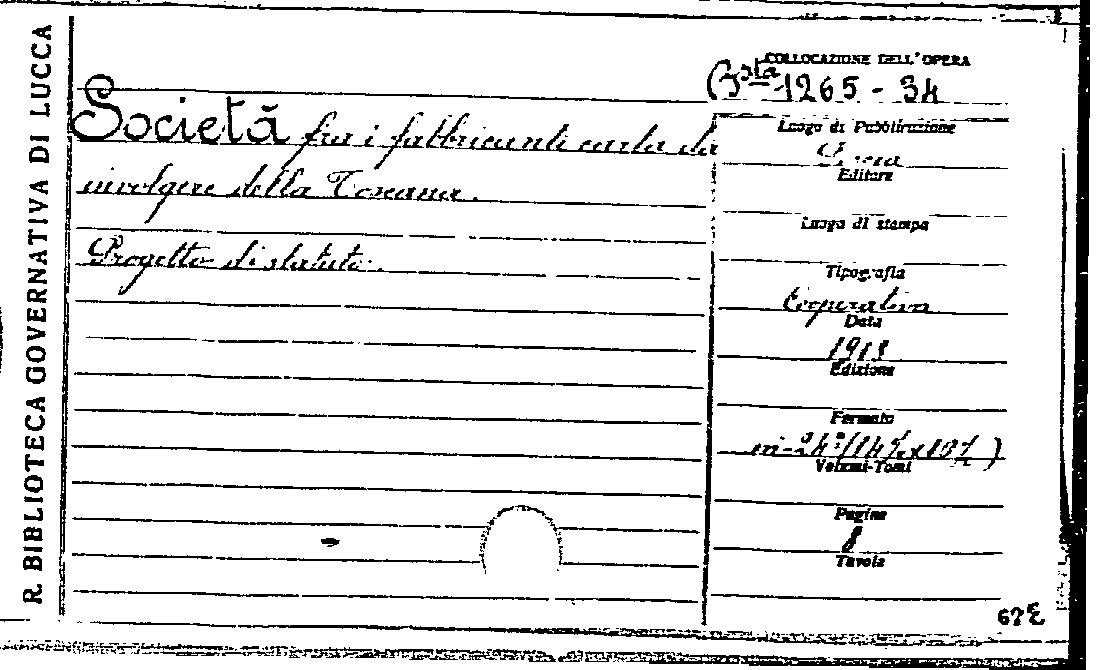 R. BIBLIOTECA GOVERNATIVA DI LUCCA
Società fra i fabbricanti carta da
involgere della Toscana.
Progetto di statuto.
COLLOCAZIONE DELL'OPERA
Bsta 1265 - 34
Luogo di Pubblicazione
Editore
Luogo di stampa
Tipografia
Cooperativa
Data
1913
Edizione
Formato
in-24°
Volumi-Tomi
Pagine
8
Tavole